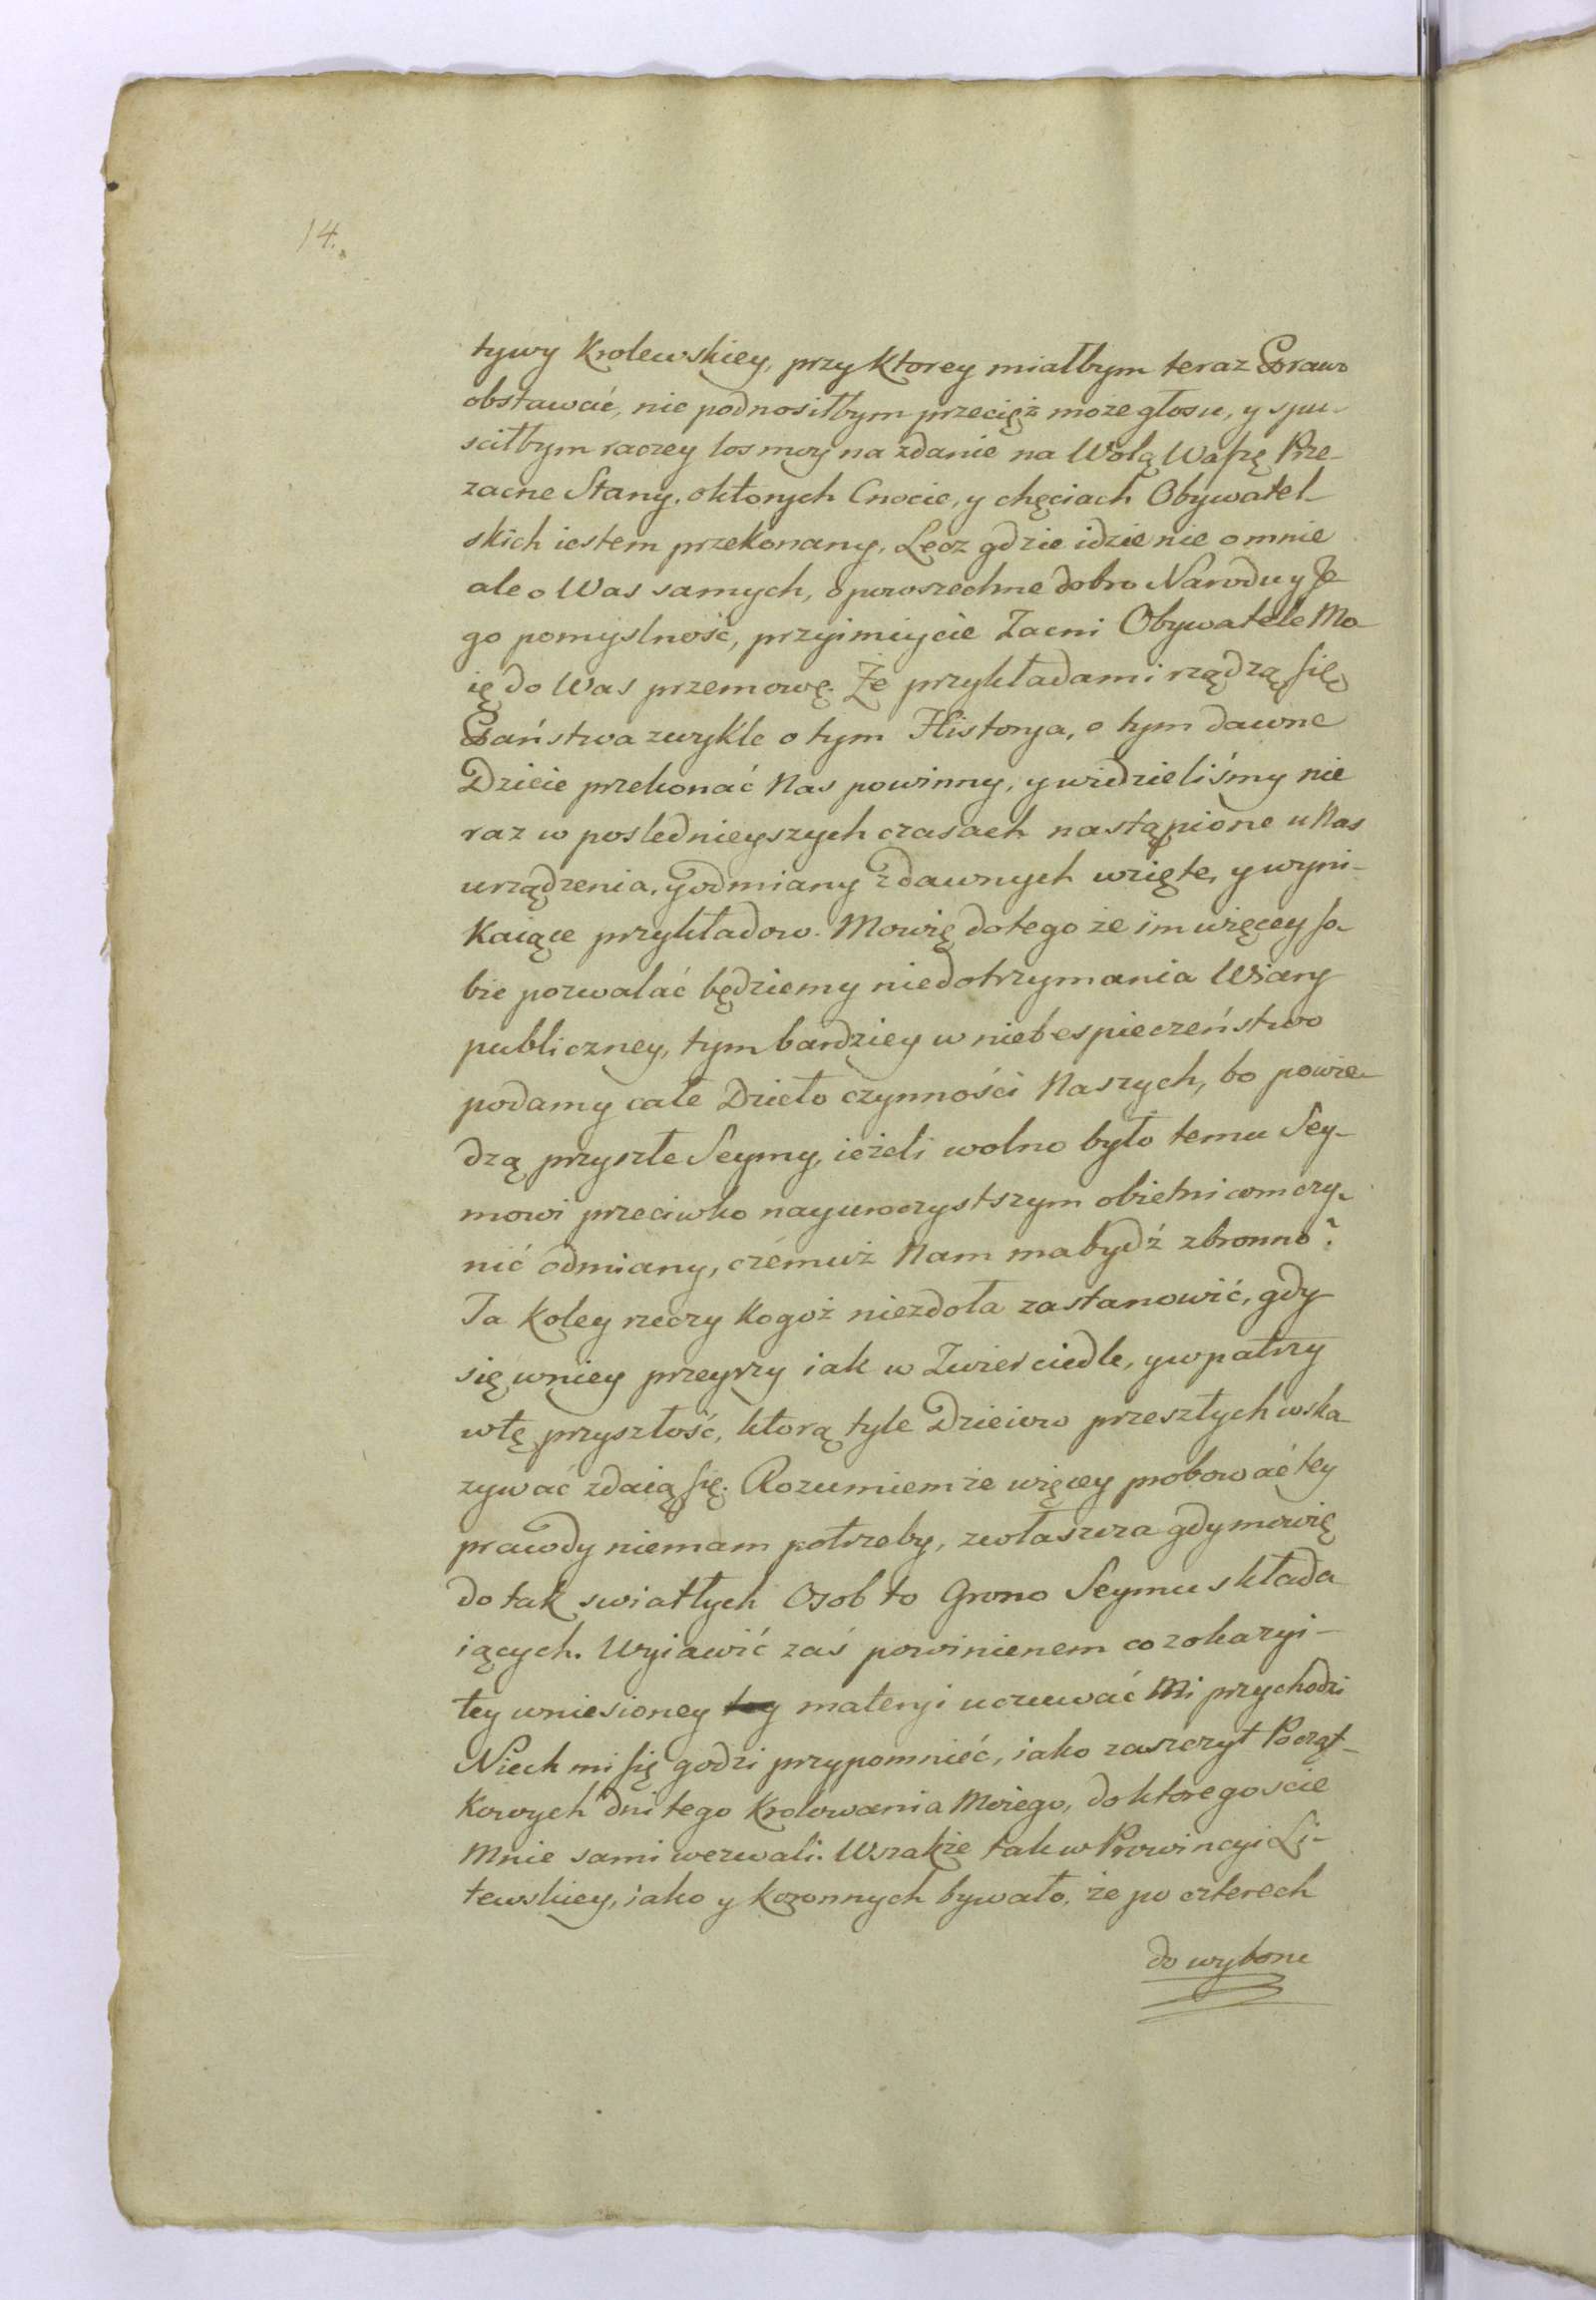 14.
tywy Krolewskiey, przy Ktorey miałbym teraz Prawo
obstawać, nie podnosiłbym przecięż może głosu, y spu-
sciłbym raczey los moy na zdanie na Wolą Waszę Prze-
zacne Stany, oktorych Cnocie, y chęciach Obywatel-
skich iestem przekonany, Lecz gdzie idzie nie o mnie
ale o Was samych, o powszechne dobro Narodu y Je-
go pomyslność, przyimiycie Zacni Obywatele Mo-
ię do Was przemowę. Że przykładami rządzą się
Państwa zwykle o tym Historya, o tym dawne
Dzieie przekonać Nas powinny, y widzieliśmy nie
raz w poslednieyszych czasach nastąpione u Nas
urządzenia, y odmiany z dawnych wzięte, y wyni-
Kaiące przykładow. Mowię do tego że im więcey so-
bie pozwalać będziemy niedotrzymania Wiary
publiczney, tym bardziey w niebespieczeństwo
podamy całe Dzieło czynności Naszych, bo powie-
dzą przyszłe Seymy, ieżeli wolno było temu Sey-
mowi przeciwko nayuroczystszym obietnicom czy-
nić odmiany, czemuż Nam ma bydź zbronno?
Ta Koley rzeczy Kogoż niezdoła zastanowić, gdy
się wniey przeyrzy iak w Zwierciedle, y wpatrzy
wtę przyszłość, ktorą tyle Dzieiow przeszłych wska-
zywać zdaią się. Rozumiem że więcey probować tey
prawdy niemam potrzeby, zwłaszcza gdy mowię
do tak swiatłych Osob to Grono Seymu składa-
iących. Wyiawić zaś powinienem co z okazyi-
tey wniesioney tey materyi uczuwać Mi przychodzi
Niech mi się godzi przypomnieć, iako zaszczyt Począt-
Kowych dni tego Krolowania Moiego, do ktoregoscie
Mnie sami wezwali. Wszakże tak w Prowincyi Li-
tewskiey, iako y Koronnych bywało, że po czterech
do wyboru